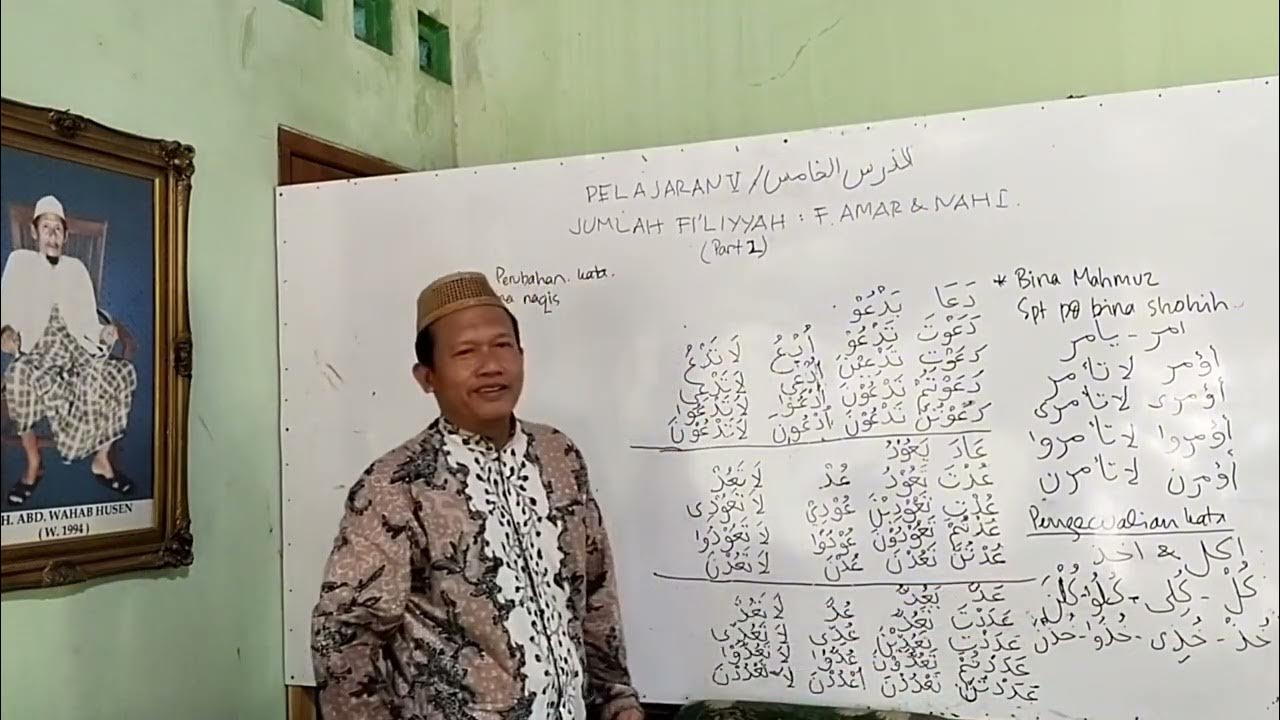 H. ABD. WAHAB HUSEN
(W. 1994)
PELAJARAN V / الدرس الخامس
JUMLAH FI'LIYYAH : F. AMAR & NAHI.
(Part 1)
Perubahan kata.
naqis
دَعَا يَدْعُوْ
دَعَوْتَ تَدْعُوْ اُدْعُ لَا تَدْعُ
دَعَوْتِ تَدْعِيْنَ اُدْعِي لَا تَدْعِي
دَعَوْتُمْ تَدْعُوْنَ اُدْعُوا لَا تَدْعُوا
دَعَوْتُنَّ تَدْعُوْنَ اُدْعُوْنَ لَا تَدْعُوْنَ
عَادَ يَعُوْدُ
عُدْتَ تَعُوْدُ عُدْ لَا تَعُدْ
عُدْتِ تَعُوْدِيْنَ عُوْدِيْ لَا تَعُوْدِى
عُدْتُمْ تَعُوْدُوْنَ عُوْدُوْا لَا تَعُوْدُوا
عُدْتُنَّ تَعُدْنَ عُدْنَ لَا تَعُدْنَ
عَدَّ يَعُدُّ
عَدَدْتَ تَعُدُّ عُدَّ لَا تَعُدَّ
عَدَدْتِ تَعُدِّيْنَ عُدِّى لَا تَعُدِّى
عَدَدْتُمْ تَعُدُّوْنَ عُدُّوْا لَا تَعُدُّوْا
عَدَدْتُنَّ تَعْدُدْنَ اُعْدُدْنَ لَا تَعْدُدْنَ
* Bina Mahmuz
Spt pd bina shohih
امر - يامر
أؤمر لا تأمر
أؤمرى لا تأمرى
أؤمروا لا تأمروا
أؤمرن لا تأمرن
Pengecualian kata
اكل & اخذ
كُلْ - كُلِى - كُلُوْا - كُلْنَ
خُذْ - خُذِى - خُذُوا - خُذْنَ